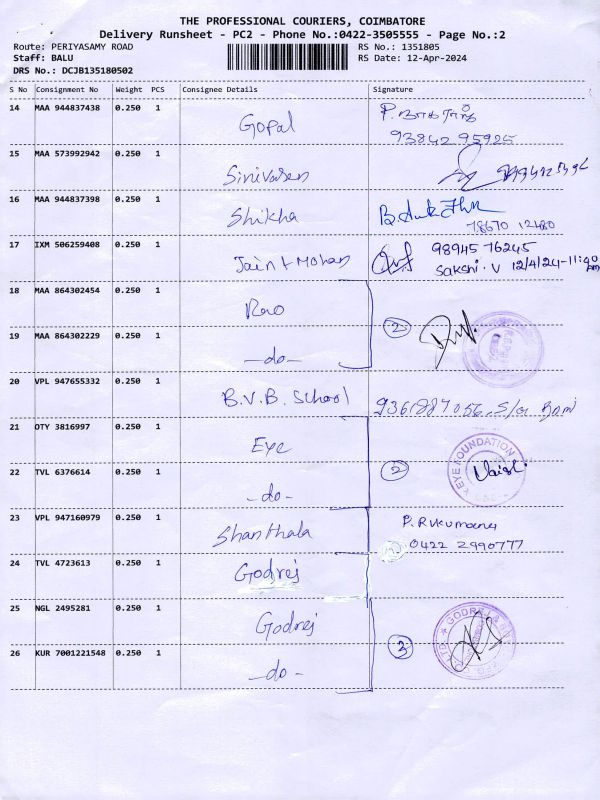 THE PROFESSIONAL COURIERS, COIMBATORE
Delivery Runsheet - PC2 - Phone No.:0422-3505555 - Page No.:2
Route: PERIYASAMY ROAD RS No.: 1351805
Staff: BALU RS Date: 12-Apr-2024
DRS No.: DCJB135180502
S No Consignment No Weight PCS Consignee Details Signature
14 MAA 944837438 0.250 1 Gopal
93842 95925
15 MAA 573992942 0.250 1 Sinivasen
16 MAA 944837398 0.250 1 Shikha
78670 12480
17 IXM 506259408 0.250 1 Jain t Mohan 98945 76245
Sakshi. V 12/4/24-11:40
18 MAA 864302454 0.250 1 Rao 2
19 MAA 864302229 0.250 1 -do-
20 VPL 947655332 0.250 1 B.V.B. School 9361887056, S/o
21 OTY 3816997 0.250 1 Eye
EYE FOUNDATION
22 TVL 6376614 0.250 1 -do- 2
23 VPL 947160979 0.250 1 Shanthala
0422 2990777
24 TVL 4723613 0.250 1 Godrej
25 NGL 2495281 0.250 1 Godrej 3
GODREJ &
26 KUR 7001221548 0.250 1 -do-